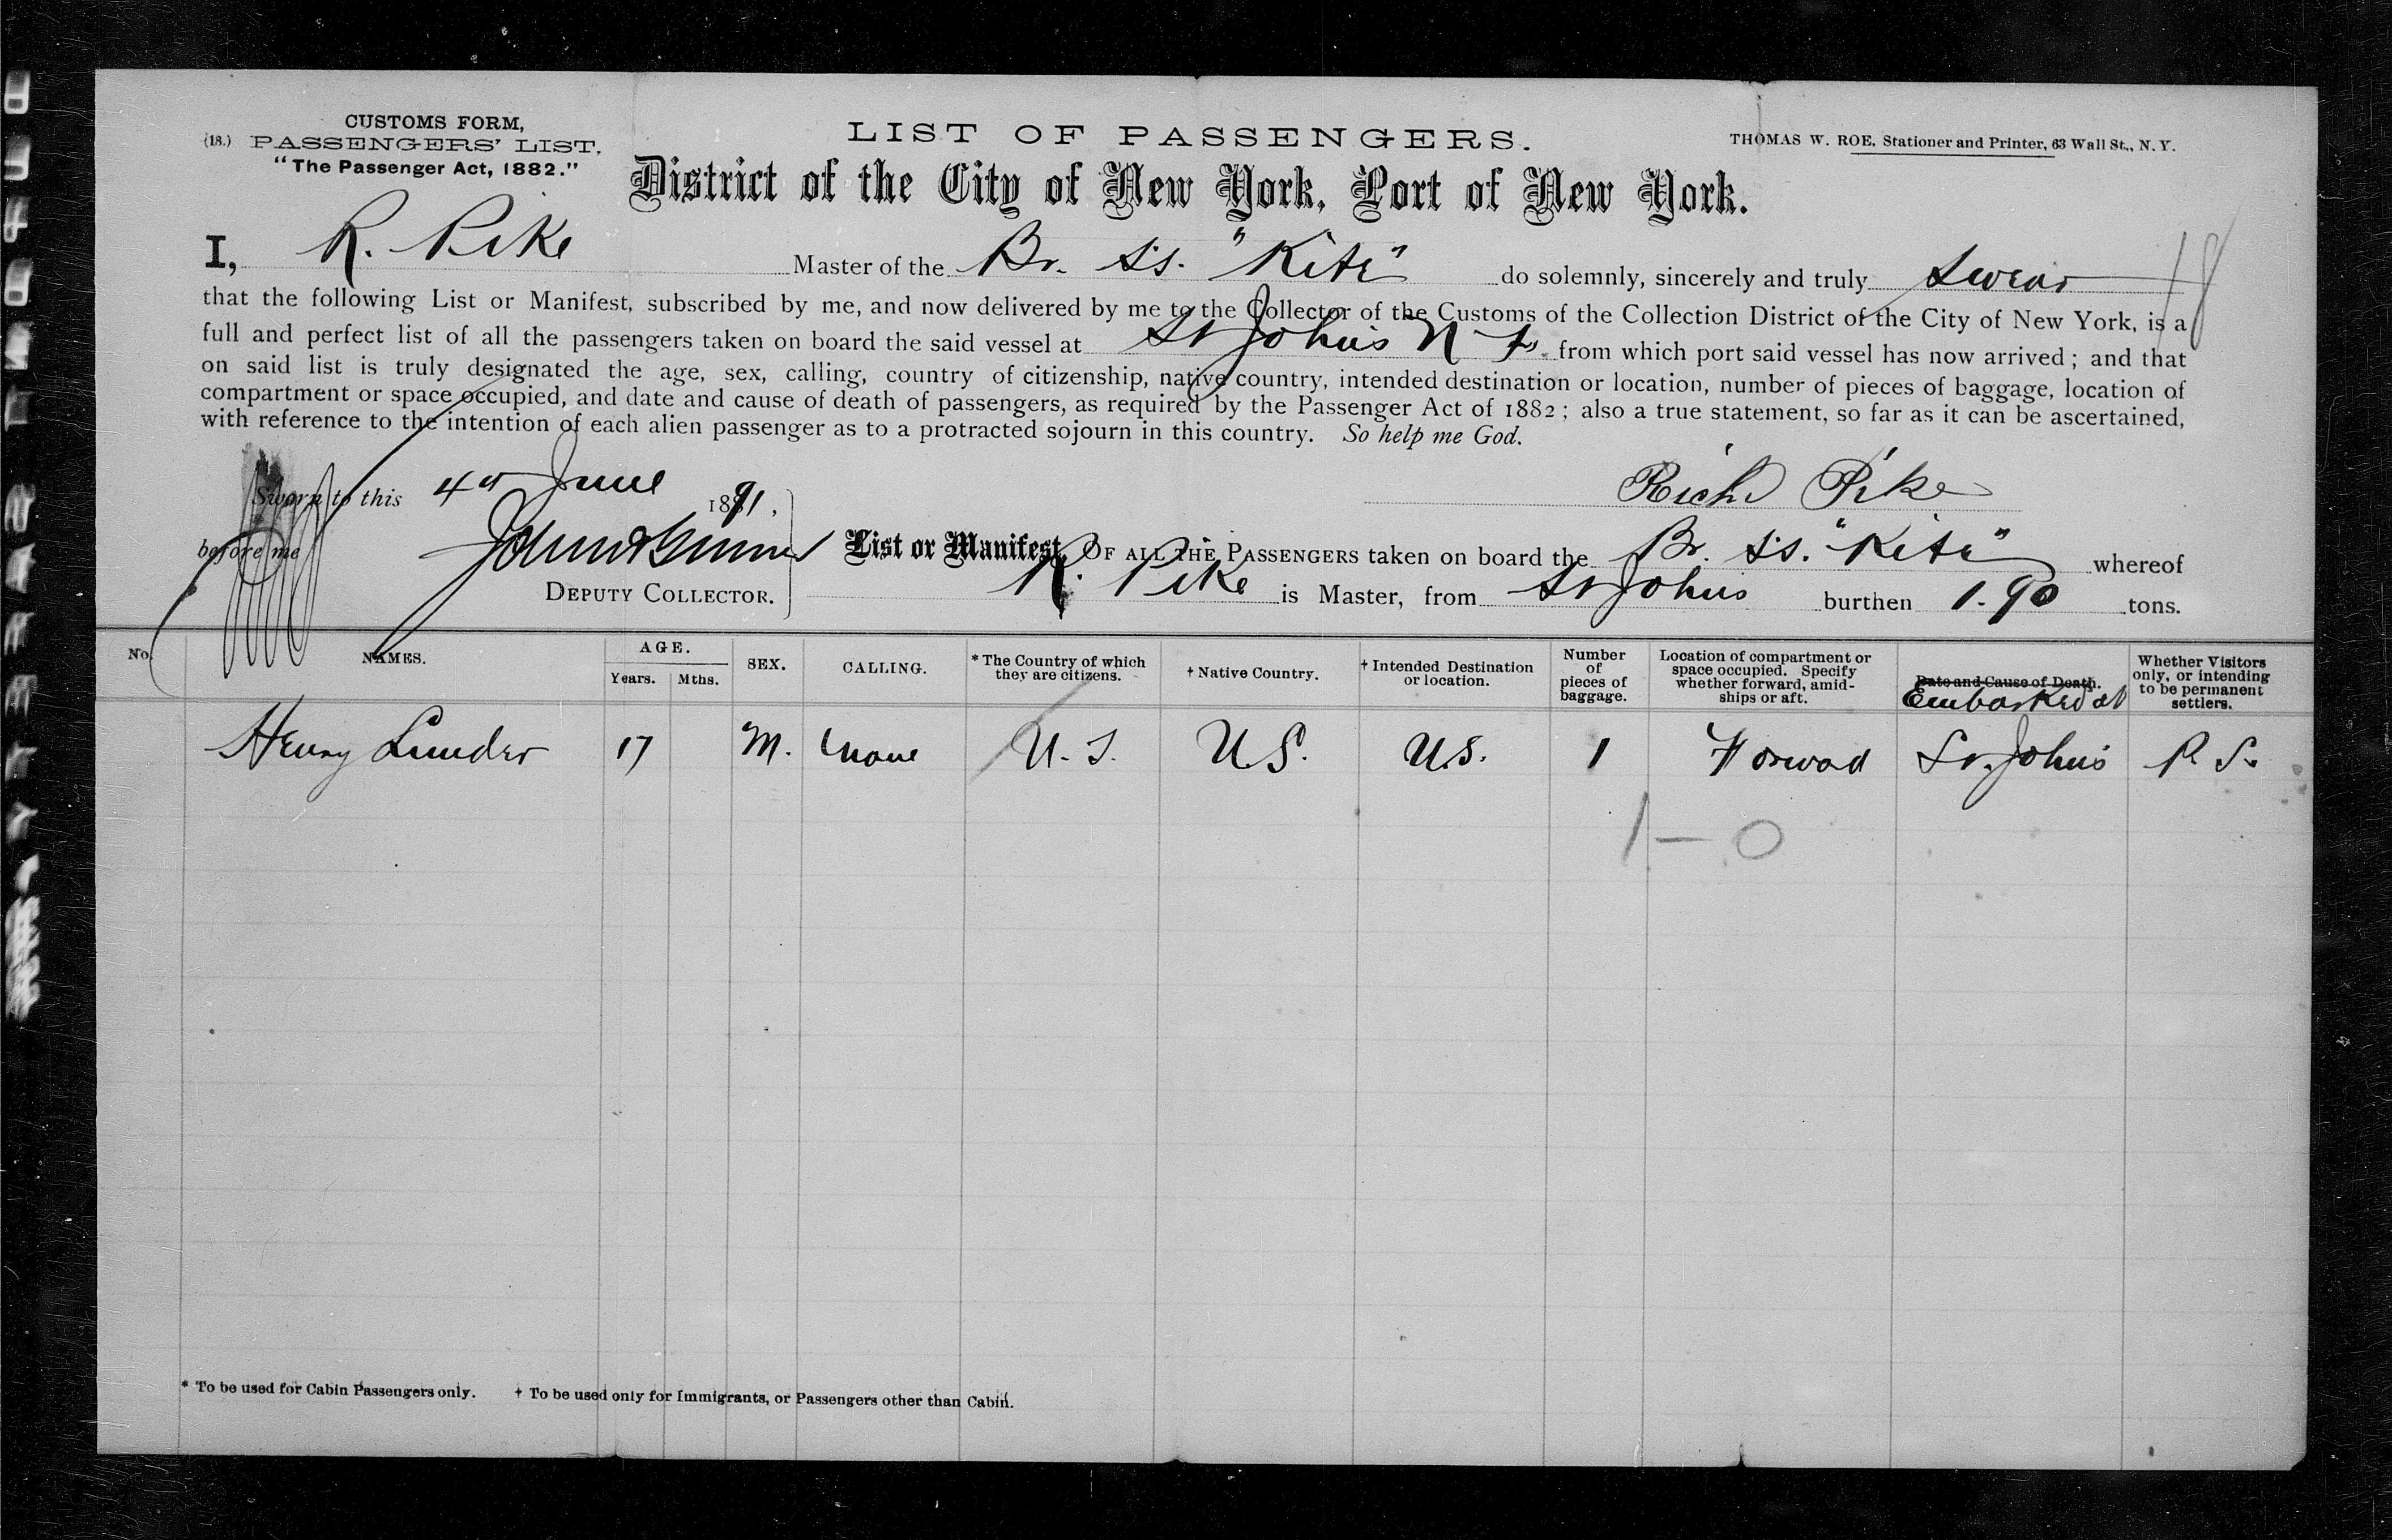 CUSTOMS FORM,
(18.) PASSENGERS' LIST.
"The Passenger Act, 1882."
LIST OF PASSENGERS.
THOMAS W. ROE, Stationer and Printer, 63 Wall St., N. Y.
District of the City of New York, Port of New York.
I, R. Pike Master of the Br. SS. "Kite" do solemnly, sincerely and truly swear
that the following List or Manifest, subscribed by me, and now delivered by me to the Collector of the Customs of the Collection District of the City of New York, is a
full and perfect list of all the passengers taken on board the said vessel at St Johns N F. from which port said vessel has now arrived; and that
on said list is truly designated the age, sex, calling, country of citizenship, native country, intended destination or location, number of pieces of baggage, location of
compartment or space occupied, and date and cause of death of passengers, as required by the Passenger Act of 1882; also a true statement, so far as it can be ascertained,
with reference to the intention of each alien passenger as to a protracted sojourn in this country. So help me God.
Sworn to this 4th June 1891,
Richd Pike
before me
DEPUTY COLLECTOR.
List or Manifest, OF ALL THE PASSENGERS taken on board the Br. SS. "Kite" whereof
R. Pike is Master, from St Johns burthen 190 tons.
No. NAMES. AGE. Years. Mths. SEX. CALLING. * The Country of which they are citizens. † Native Country. † Intended Destination or location. Number of pieces of baggage. Location of compartment or space occupied. Specify whether forward, amidships or aft. Date and Cause of Death. Embarked at Whether Visitors only, or intending to be permanent settlers.
Henry Lunder 17 M. None U. S. U.S. U.S. 1 Forwod St. Johns P. S.
1 — 0
* To be used for Cabin Passengers only. † To be used only for Immigrants, or Passengers other than Cabin.